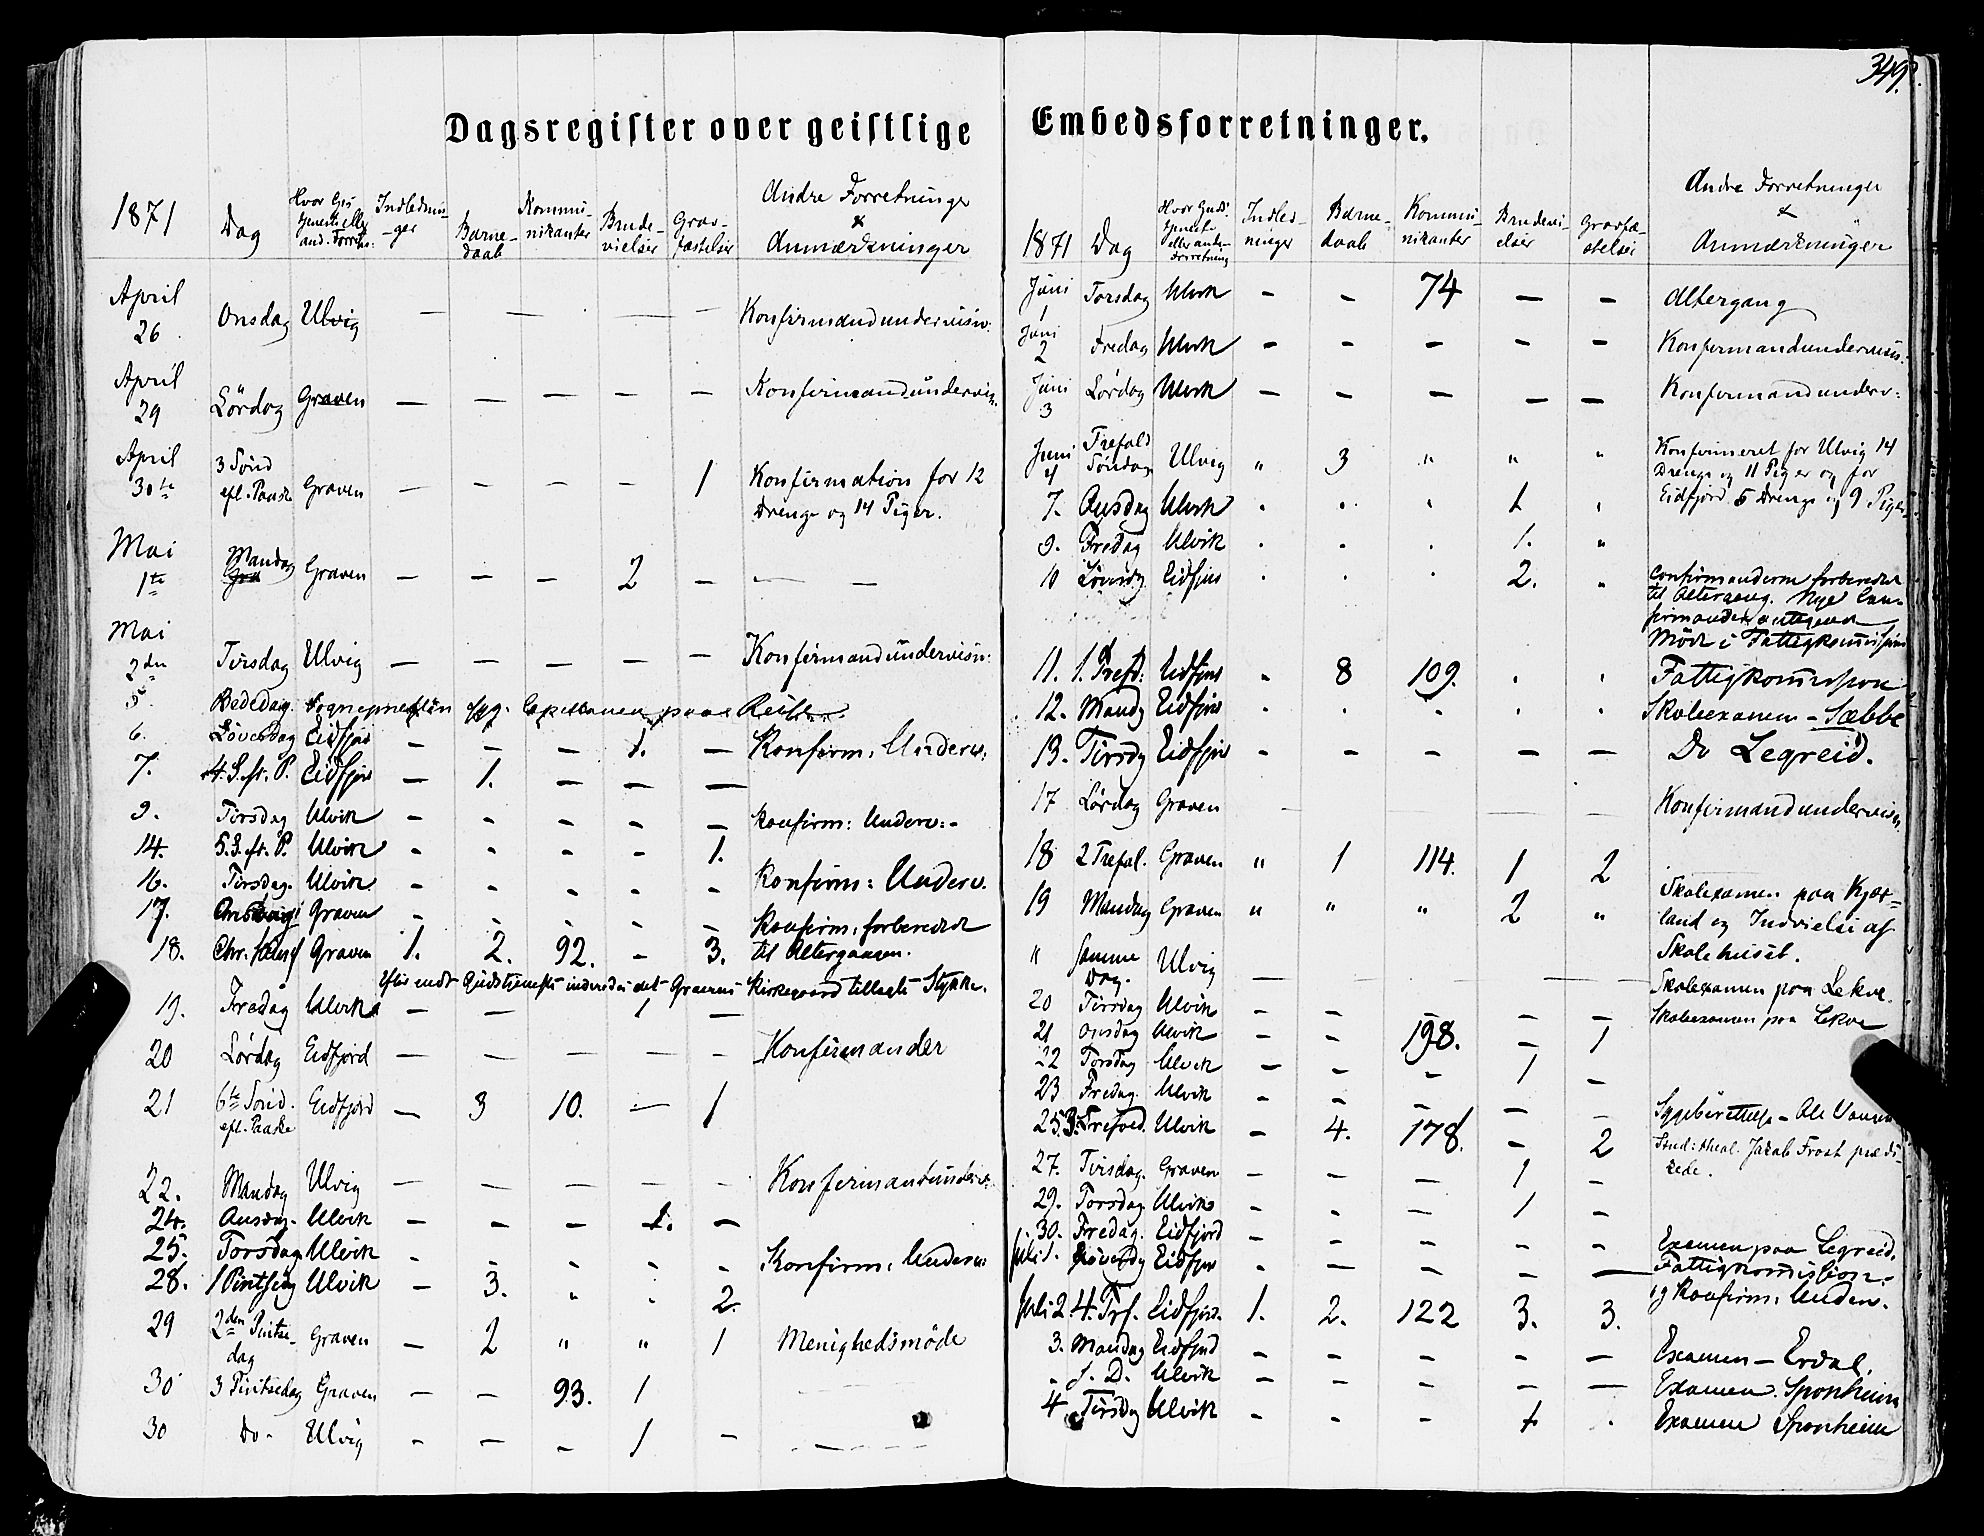 349.
Dagsregister over geistlige Embedsforretninger.
1871 Dag Hvor Gudstjeneste eller and. Forretn: Indledninger Barnedaab Kommunikanter Brudevielser Gravfæstelser Andre Forretninger & Anmærkninger
April 26 Onsdag Ulvig — — — — — Konfirmandundervisn:
April 29 Lördag Graven — — — — — Konfirmandundervisn.
April 30te 3 Sönd eft. Paaske Graven — — — — 1 Konfirmation for 12
Drenge og 14 Piger.
Mai 1te Mandag Graven — — — 2 — — —
Mai 2den Tirsdag Ulvig — — — — — Konfirmandundervisn:
5. Bededag. Sognepresten syg. Capellanen paa Reiser.
6. Löverdag Eidfjord — — — 1. — Konfirm: Underv.
7. 4. S. ft. P. Eidfjord — 1. — — —
9. Tirsdag Ulvik - - - - - Konfirm: Underv: -
14. 5. S. ft. P. Ulvik - - - - 1.
16. Tirsdag. Ulvik - - - - - Konfirm: Underv.
17. Onsdag Graven - - - - - Konfirm: forberedet
18. Chr. Himlf Graven 1. 2. 92. - 3. til Altergangen.
Efter endt Gudstjeneste indviedes det Gravens Kirkegaard tillagte Stykke.
19. Fredag Ulvik — — 1 —
20 Lördag Eidfjord — — — — — Konfirmander
21 6te Sönd. eft. Paaske Eidfjord — 3 10. — 1
22. Mandag Ulvig — — — — — Konfirmandunderv:
24. Onsdag. Ulvik - - - 1. -
25. Torsdag Ulvik - - - - - Konfirm: Underv
28. 1 Pintsedag Ulvik - 3. " : 2.
29 2den Pintsedag Graven — 2 " " 1 Menighedsmöde
30 3 Pintsedag Graven — — 93. 1
30 Do - Ulvig - — - 1 -
1871 Dag Hvor Guds tjeneste eller anden Forretning Indledninger Barnedaab Kommunikanter Brudevielser Gravfæstelser Andre Forretninger & Anmærkninger
Juni 1 Torsdag Ulvik - - 74 — — Altergang
Juni 2 Fredag Ulvik - - - - - Konfirmandundervisn.
Juni 3 Lördag Ulvik - - - - - Konfirmandunderv:
Juni 4 Trefold Söndag Ulvig " 3 " " " Konfirmeret for Ulvig 14
Drenge og 11 Piger og for
Eidfjord 5 Drenge og 9 Piger
7. Onsdag Ulvik . . . 1 .
9. Fredag Ulvik . . . 1. "
10 Löverdg Eidfjord . . . 2. " Confirmanderne forberedet
til Altergang. Nye Confirmander antegnet
Möde i Fattigkommissionen
11. 1. Trefd: Eidfjord " 8 109. . . Fattigkommission
12. Mandg Eidfjord . . . . . Skoleexamen - Sæbbe
13. Tirsdg Eidfjord - - - - - Do Legreid.
17 Lördag Graven — — — — Konfirmandundervisn.
18 2 Trefol. Graven " 1 114. 1 2
19 Mandag Graven " " " 2 " Skoleexamen paa Kjærland og Indvielse af
Skolehuset.
" Samme Dag. Ulvig — — — — Skoleexamen paa Lekve.
20 Tirsdag Ulvik - - - - - Skoleexamen paa Lekve
21 Onsdag Ulvik - - 198. - 1
22 Torsdag Ulvik - - - 1 -
23 Fredag. Ulvik - - - - - Sygeberettelse - Ole
25. 3. Trefold. Ulvik - 4. 178. - 2 Stud: theol. Jakob Frost prædikede.
27. Tirsdag. Graven - - - 1 -
29. Torsdag Ulvik - - - 1 -
30. Fredag. Eidfjord - - - - - Examen paa Legreid.
Juli 1. Löverdg Eidfjord - - - - — Fattigkommission -
og Konfirm: Underv.
Juli 2 4. Trf. Eidfjord. 1. 2. 122 3. 3.
3. Mandag Eidfjord - - - - - Examen - Erdal.
" s. D. Ulvik - - - - — Examen. Sponheim
4 Tirsdag Ulvik - - - 1 . Examen Sponheim